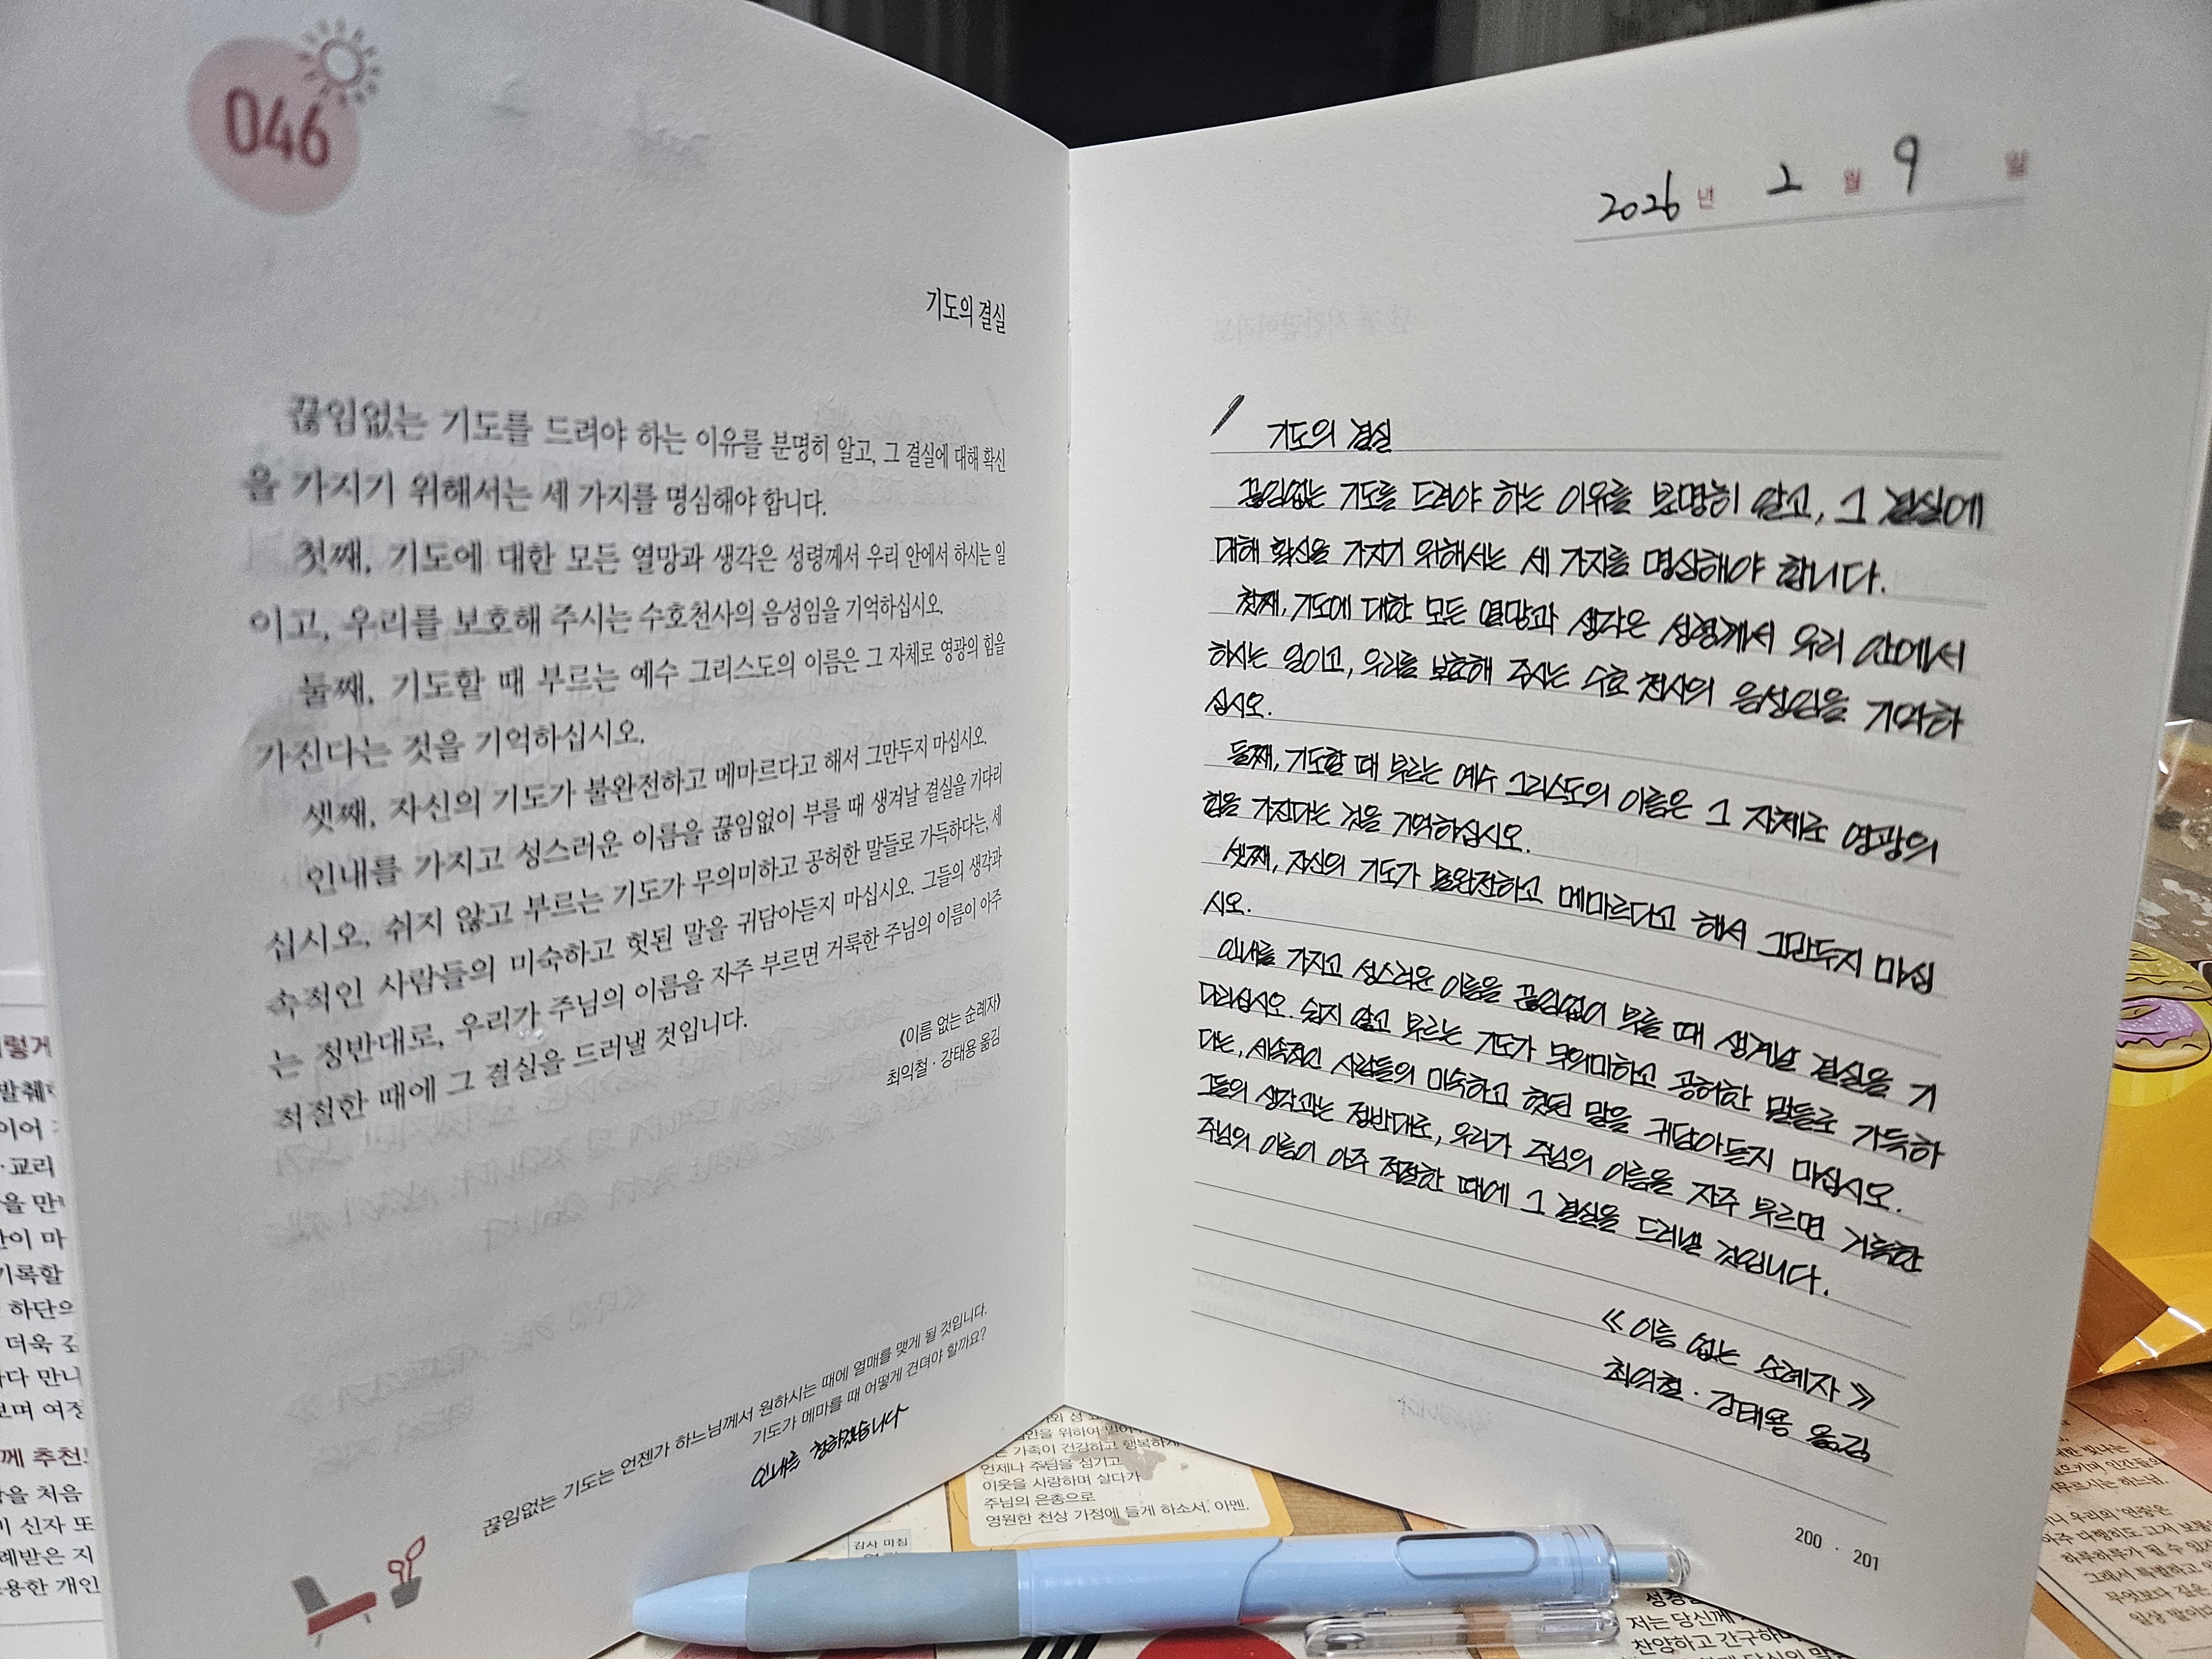 046
기도의 결실
끊임없는 기도를 드려야 하는 이유를 분명히 알고, 그 결실에 대해 확신
을 가지기 위해서는 세 가지를 명심해야 합니다.
첫째, 기도에 대한 모든 열망과 생각은 성령께서 우리 안에서 하시는 일
이고, 우리를 보호해 주시는 수호천사의 음성임을 기억하십시오.
둘째, 기도할 때 부르는 예수 그리스도의 이름은 그 자체로 영광의 힘을
가진다는 것을 기억하십시오.
셋째, 자신의 기도가 불완전하고 메마르다고 해서 그만두지 마십시오.
인내를 가지고 성스러운 이름을 끊임없이 부를 때 생겨날 결실을 기다리
십시오. 쉬지 않고 부르는 기도가 무의미하고 공허한 말들로 가득하다는, 세
속적인 사람들의 미숙하고 헛된 말을 귀담아듣지 마십시오. 그들의 생각과
는 정반대로, 우리가 주님의 이름을 자주 부르면 거룩한 주님의 이름이 아주
적절한 때에 그 결실을 드러낼 것입니다.
《이름 없는 순례자》
최익철 · 강태용 옮김
끊임없는 기도는 언젠가 하느님께서 원하시는 때에 열매를 맺게 될 것입니다.
기도가 메마를 때 어떻게 견뎌야 할까요?
2026 년 2 월 9 일
기도의 결실
끊임없는 기도를 드려야 하는 이유를 분명히 알고, 그 결실에
대해 확신을 가지기 위해서는 세 가지를 명심해야 합니다.
첫째, 기도에 대한 모든 열망과 생각은 성령께서 우리 안에서
하시는 일이고, 우리를 보호해 주시는 수호 천사의 음성임을 기억하
십시오.
둘째, 기도할 때 부르는 예수 그리스도의 이름은 그 자체로 영광의
힘을 가진다는 것을 기억하십시오.
셋째, 자신의 기도가 불완전하고 메마르다고 해서 그만두지 마십
시오.
인내를 가지고 성스러운 이름을 끊임없이 부를 때 생겨날 결실을 기
다리십시오. 쉬지 않고 부르는 기도가 무의미하고 공허한 말들로 가득하
다는, 세속적인 사람들의 미숙하고 헛된 말을 귀담아듣지 마십시오.
그들의 생각과는 정반대로, 우리가 주님의 이름을 자주 부르면 거룩한
주님의 이름이 아주 적절한 때에 그 결실을 드러낼 것입니다.
《이름 없는 순례자》
최익철 · 강태용 옮김
200 · 201
가족이 건강하고 행복하게
언제나 주님을 섬기고
이웃을 사랑하며 살다가
주님의 은총으로
영원한 천상 가정에 들게 하소서. 아멘.
감사 마침
저는 당신께
찬양하고 간구하며